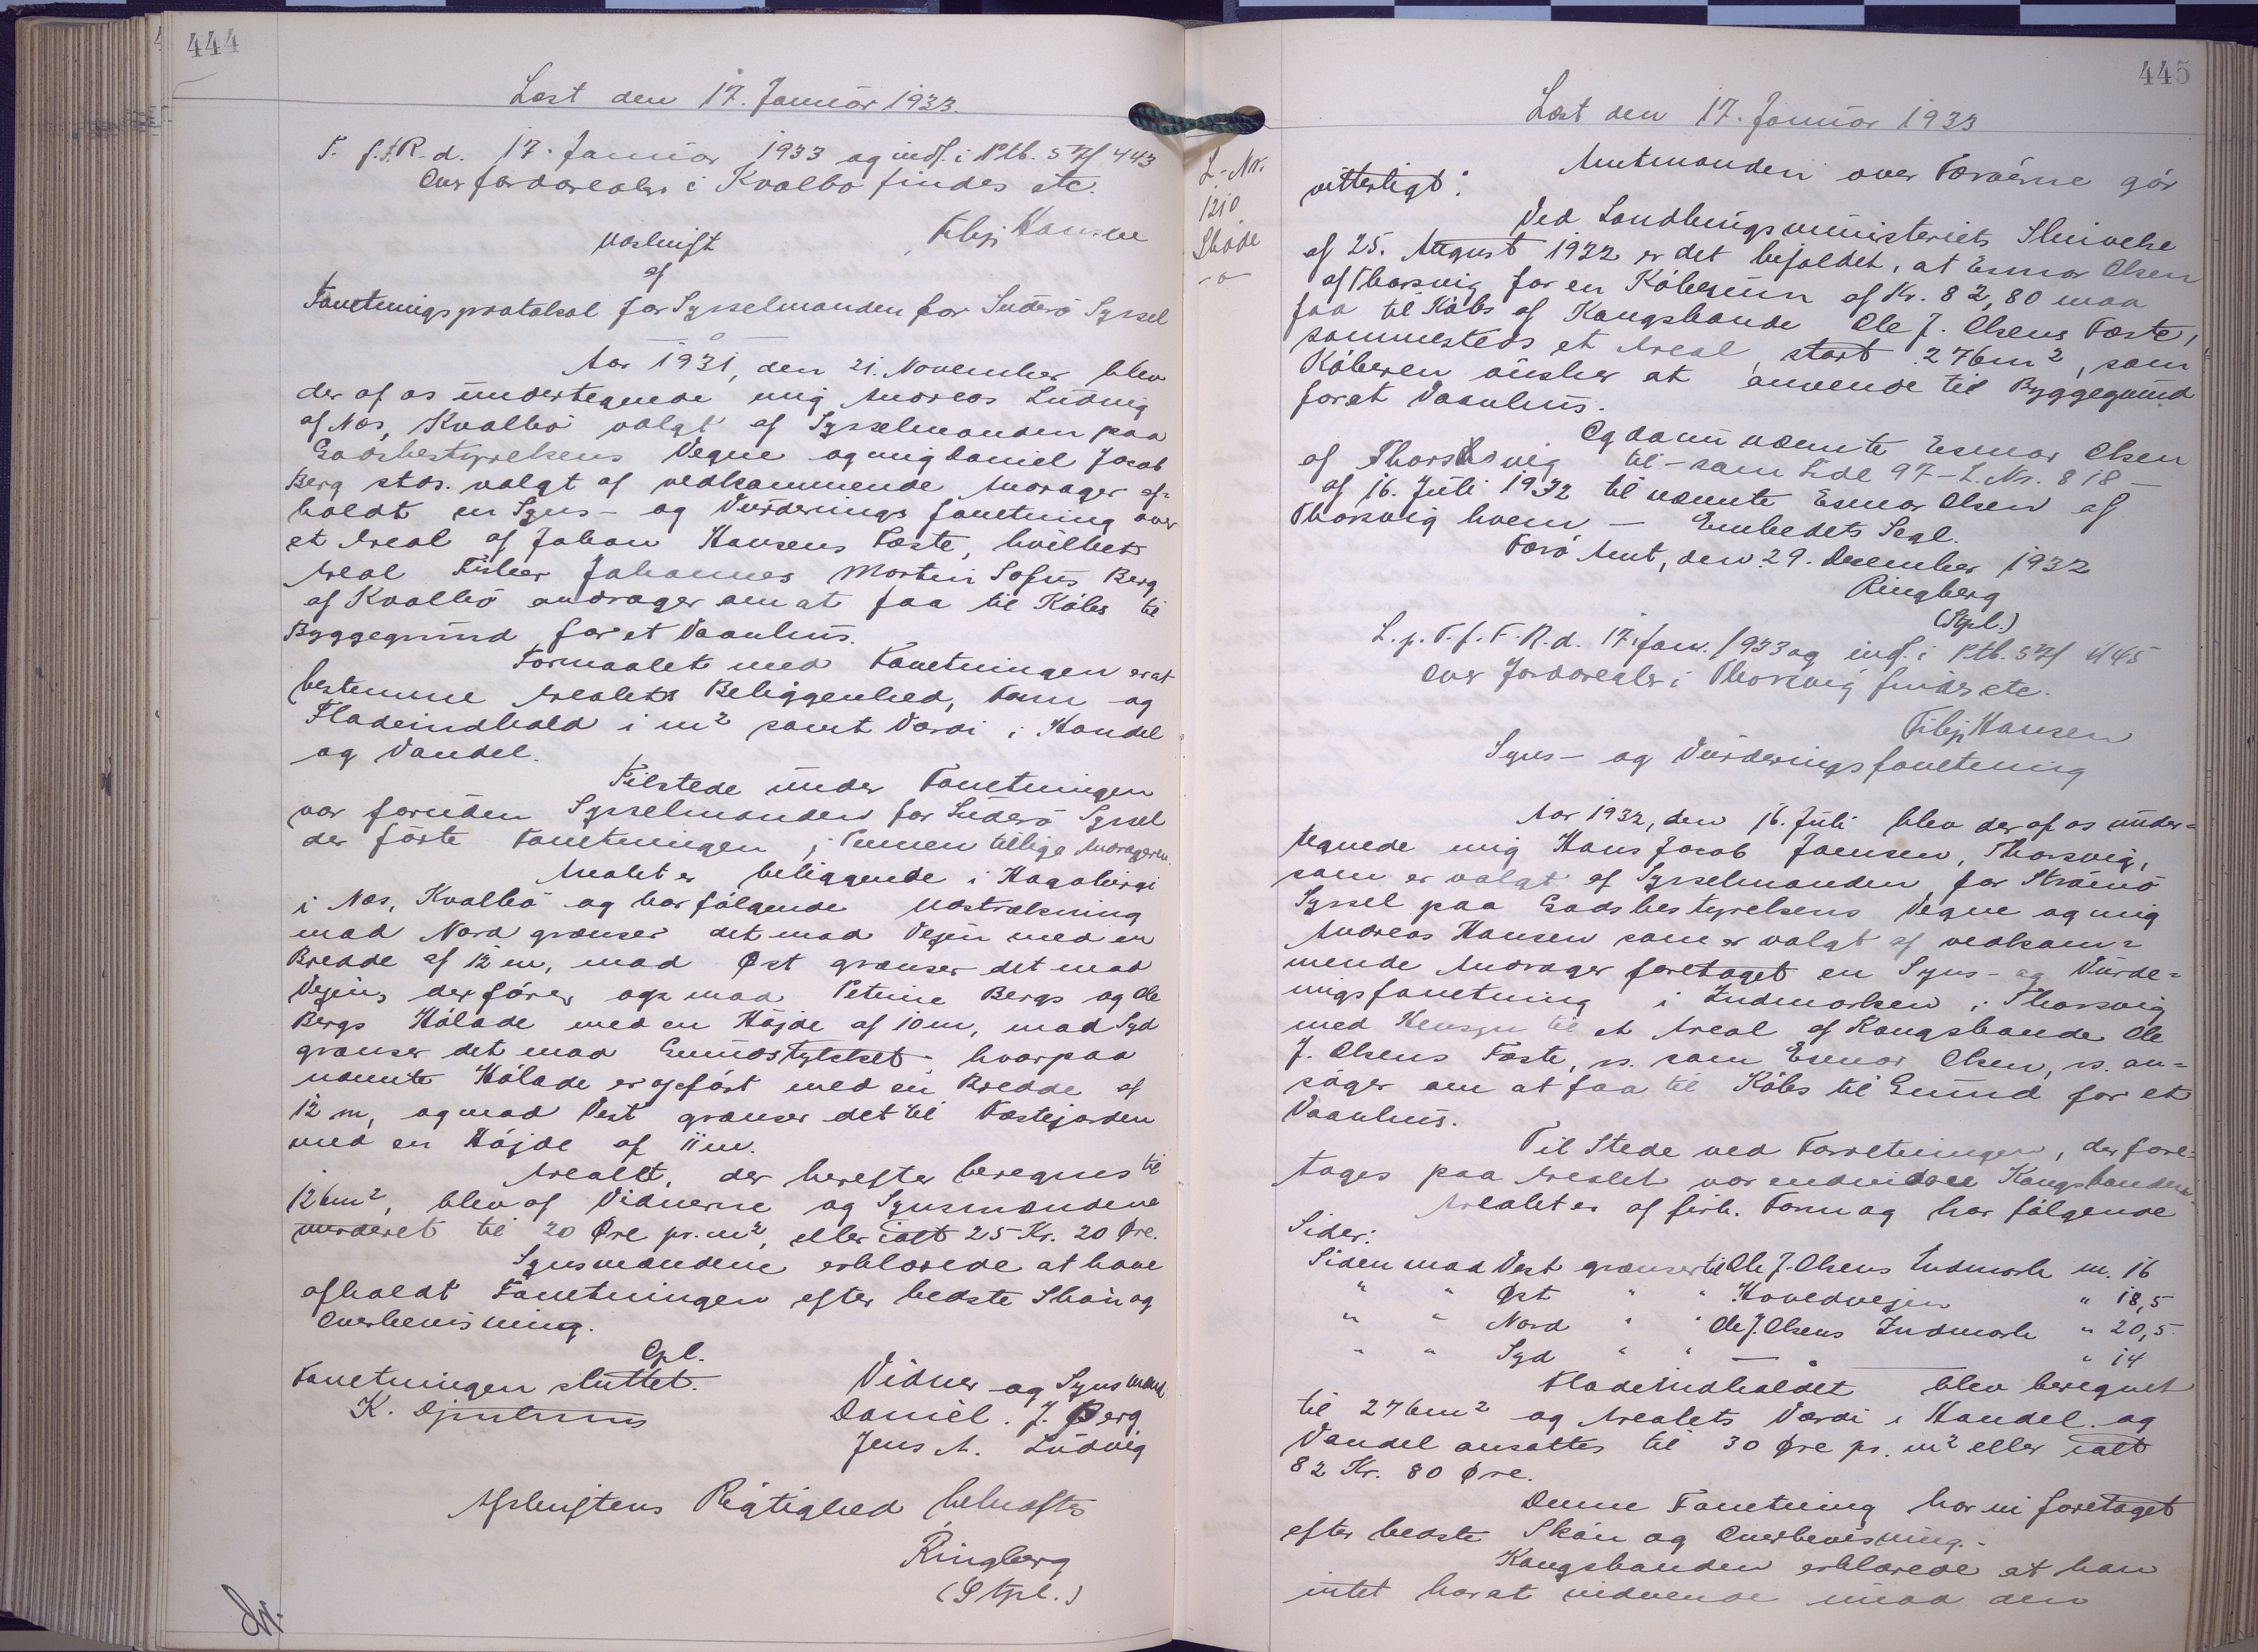 444
Læst den 17. Januar 1933.
T. f. F. R. d. 17. Januar 1933 og indf. i Ptb. 5 7/ 443
Over Jordarealer i Kvalbø findes etc.
Filip Hansen
Udskrift
af
Forretningsprotokol for Sysselmanden for Suderø Syssel
Aar 1931, den 21. November blev
der af os undertegnede mig Andreas Ludvig
af Nes, Kvalbø valgt af Sysselmanden paa
Godsbestyrelsens Vegne og mig Daniel Jacob
Berg stds. valgt af vedkommende Andrager af=
holdt en Syns- og Vurderings forretning over
et Areal af Johan Hansens Fæste, hvilket
Areal Fisker Johannes Martin Sofus Berg
af Kvalbø andrager om at faa til Købs til
Byggegrund for et Vaanhus.
Formaalet med Forretningen er at
bestemme Arealets Beliggenhed, Form og
Fladeindhold i m² samt Værdi i Handel
og Vandel.
Tilstede under Forretningen
var foruden Sysselmanden for Suderø Syssel
der førte Forretningen i Pennen tillige Andrageren.
Arealet er beliggende i Hagabirgi
i Nes, Kvalbø og har følgende Udstrækning
mod Nord grænser det mod Vejen med en
Bredde af 12 m, mod Øst grænser det mod
Vejen, der fører op mod Petrine Bergs og Ole
Bergs Hølade med en Højde af 10 m, mod Syd
grænser det mod Grundstykket hvorpaa
nævnte Hølade er opført med en Bredde af
12 m, og mod Vest grænser det til Fæstejorden
med en Højde af 11 m.
Arealet, der herefter beregnes til
126 m², blev af Vidnerne og Synsmændene
vurderet til 20 Øre pr. m², eller ialt 25 Kr. 20 Øre.
Synsmændene erklærede at have
afholdt Forretningen efter bedste Skøn og
Overbevisning.
Opl.
Forretningen sluttet.
Vidner og Synsmænd
K. Djurhuus
Daniel. J. Berg
Jens A. Ludvig
Afskriftens Rigtighed bekræftes
Ringberg
(Stpl.)
445
Læst den 17. Januar 1933
L.-Nr.
1210
Skøde
-o-
Amtmanden over Færøerne gør
vitterligt:
Ved Landbrugsministeriets Skrivelse
af 25. August 1932 er det bifaldet, at Esmar Olsen
af Thorsvig for en Købesum af Kr. 82,80 maa
faa til Købs af Kongsbonde Ole J. Olsens Fæste,
sammesteds et Areal, stort 276 m², som
Køberen ønsker at anvende til Byggegrund
for et Vaanhus.
Og da nu nævnte Esmar Olsen
af Thorsvig til - som Side 97 - L. Nr. 818 -
af 16. Juli 1932 til nævnte Esmar Olsen af
Thorsvig hvem - Embedets Segl.
Færø Amt, den 29. December 1932
Ringberg
(Stpl.)
L. p. T. f. F. R. d. 17. Jan. 1933 og indf. i Ptb. 5 7/ 445
Over Jordarealer i Thorsvig findes etc.
Filip Hansen
Syns- og Vurderingsforretning
Aar 1932, den 16. Juli blev der af os under=
tegnede mig Hans Jacob Joensen, Thorsvig,
som er valgt af Sysselmanden for Strømø
Syssel paa Godsbestyrelsens Vegne og mig
Andreas Hansen som er valgt af vedkom=
mende Andrager foretaget en Syns- og Vurde=
ringsforretning i Indmarken i Thorsvig
med Hensyn til et Areal af Kongsbonde Ole
J. Olsens Fæste, ss. som Esmar Olsen, ss. an=
søger om at faa til Købs til Grund for et
Vaanhus.
Til Stede ved Forretningen, der fore=
tages paa Arealet var endvidere Kongsbonden.
Arealet er af firk. Form og har følgende
Sider:
Siden mod Vest grænser til Ole J. Olsens Indmark m. 16
" " Øst " " Hovedvejen " 18,5
" " Nord " " Ole J. Olsens Indmark " 20,5
" " Syd " " — " — " 14
Fladeindholdet blev beregnet
til 276 m² og Arealets Værdi i Handel og
Vandel ansattes til 30 Øre pr. m² eller ialt
82 Kr. 80 Øre.
Denne Forretning har vi foretaget
efter bedste Skøn og Overbevisning.
Kongsbonden erklærede at han
intet har at indvende imod den